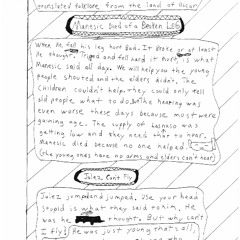 translated folklore from the land of Oscar
Manesic Died of a Broken Leg
When he fell his leg hurt bad. It broke or at least
He thought. Tripped and fell hard it hurt, is what
Manesic said all day. We will help you the young
People shouted and the elders didn't. The
Children couldn't help, they could only tell
old people, what to do. But the hearing was
even worse these days because most were
gaining age. The supply of was
getting low and they need that to hear.
Manesic died because no one helped.
(the young ones have no arms and elders can't hear)
Jalez Can't Fly
Jalez jumped and jumped. Use your head
stupid is what they said to him. He
was he thought. But why can't
I fly? He was just young that's all.